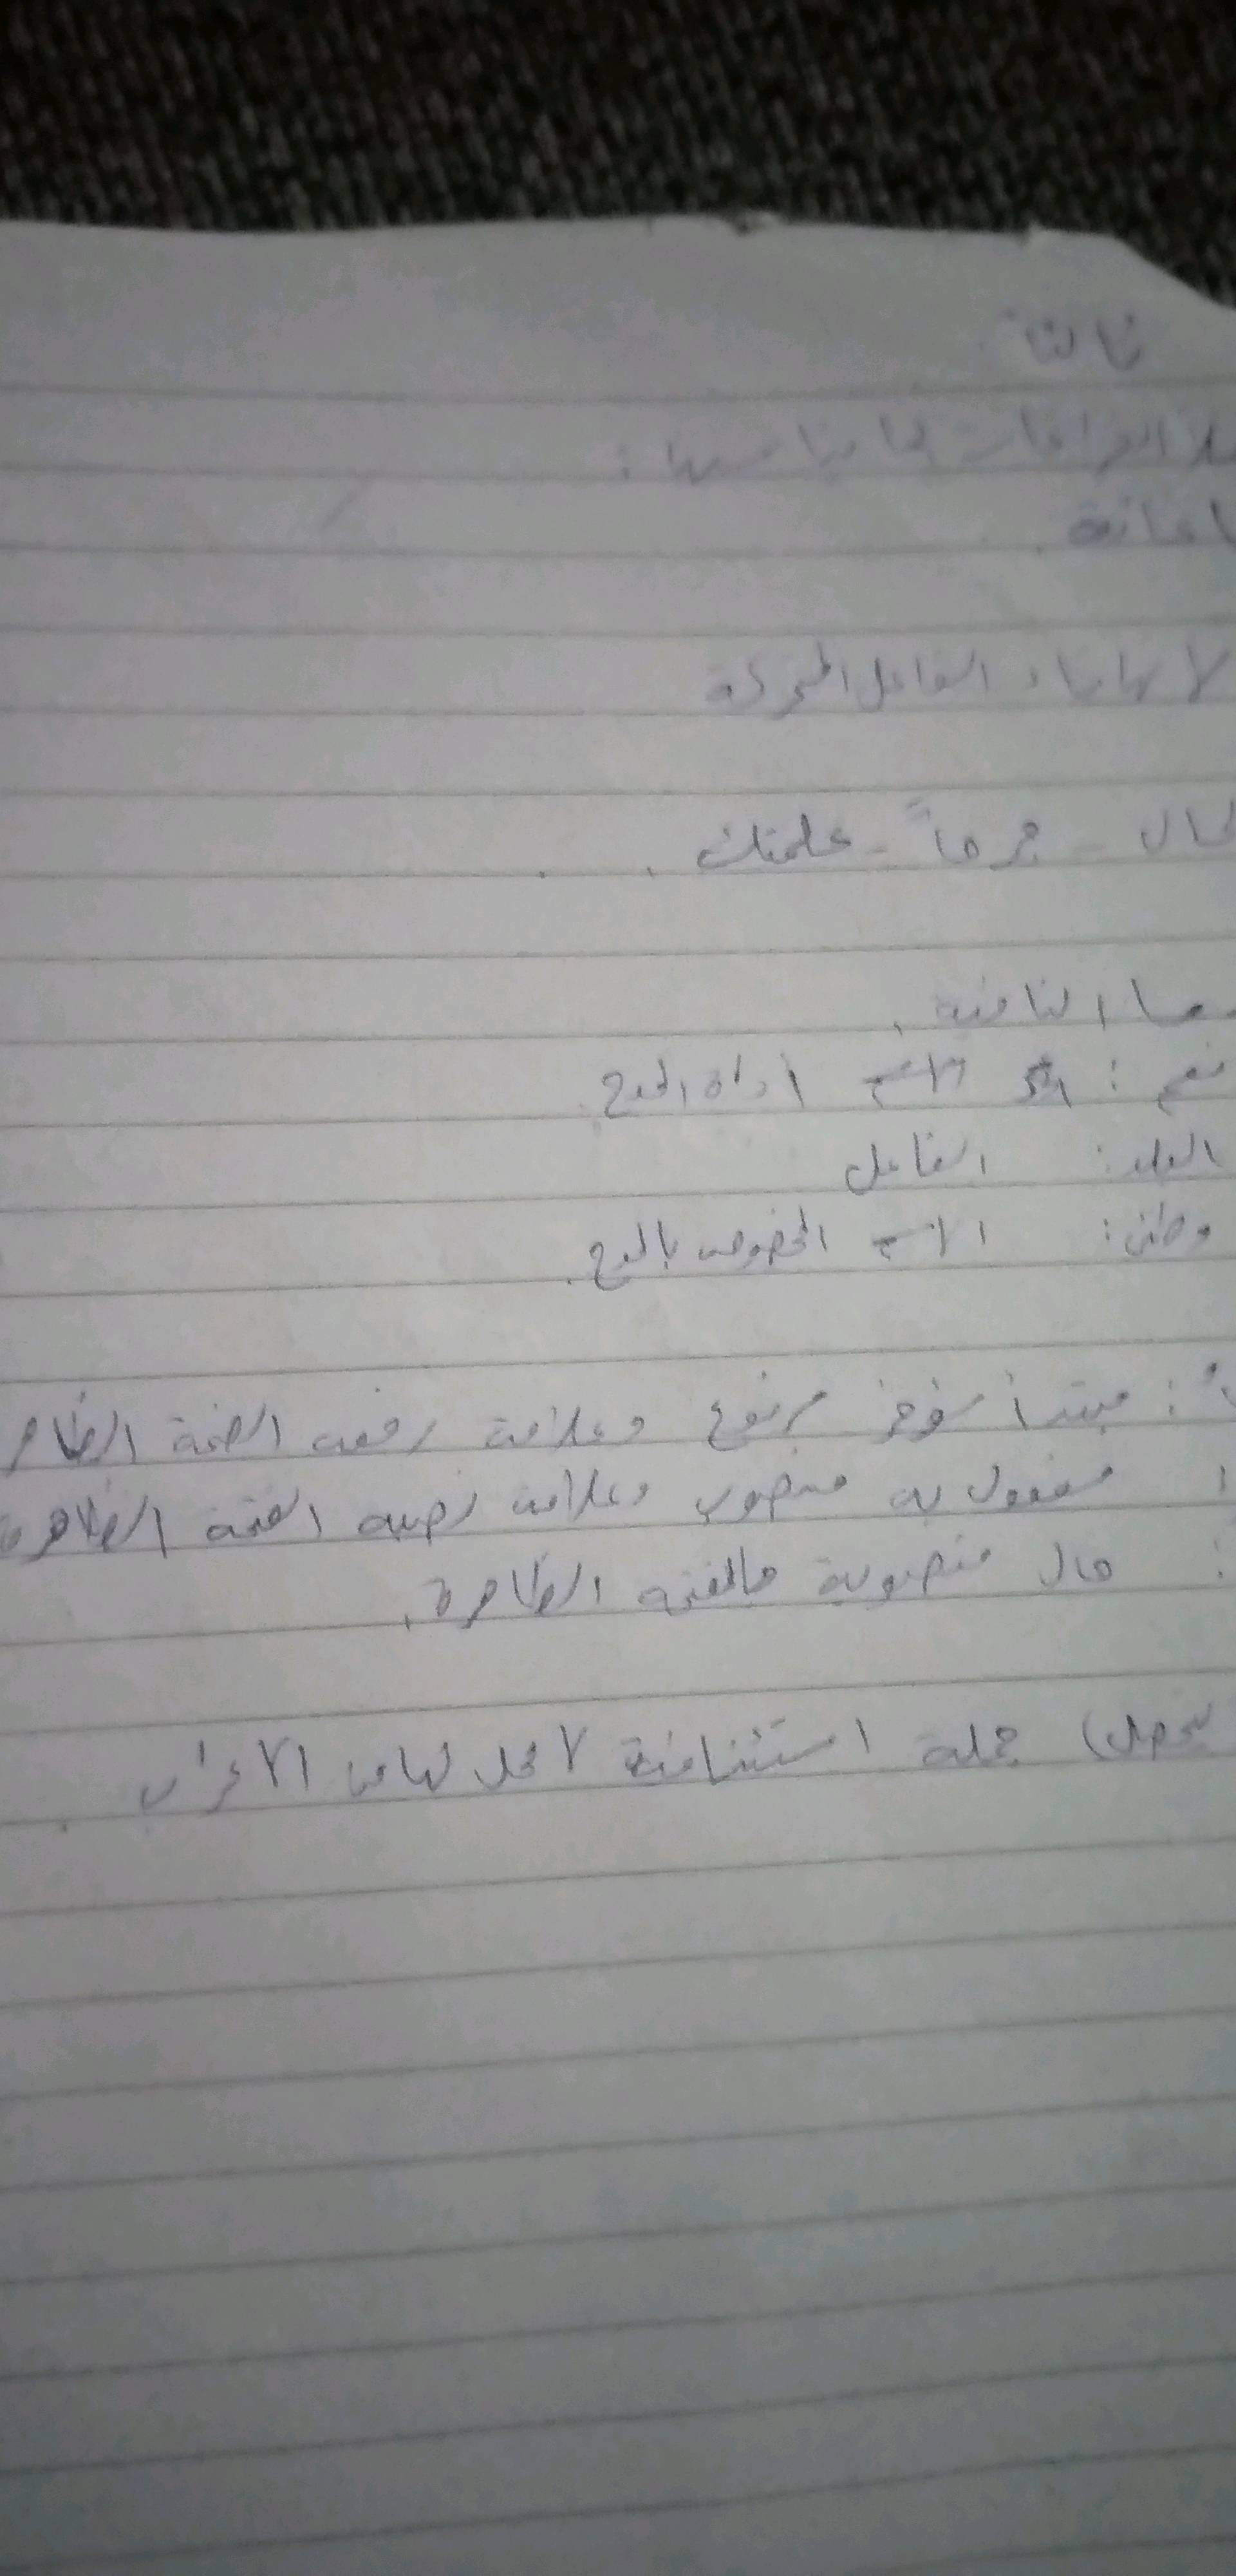 ثالثا:
الفراغات بما يناسبها:
الفاعل المتحركة
حال - جرحاً - علمتك.
ما النافية.
نعم: أداة المدح.
البلد: الفاعل
وطني: الاسم المخصوص بالمدح.
: مبتدأ مؤخر مرفوع وعلامة رفعه الضمة
مفعول به منصوب وعلامة نصبه الفتحة الظاهرة
: حال منصوبة بالفتحة الظاهرة.
جملة استئنافية لا محل لها من الاعراب.